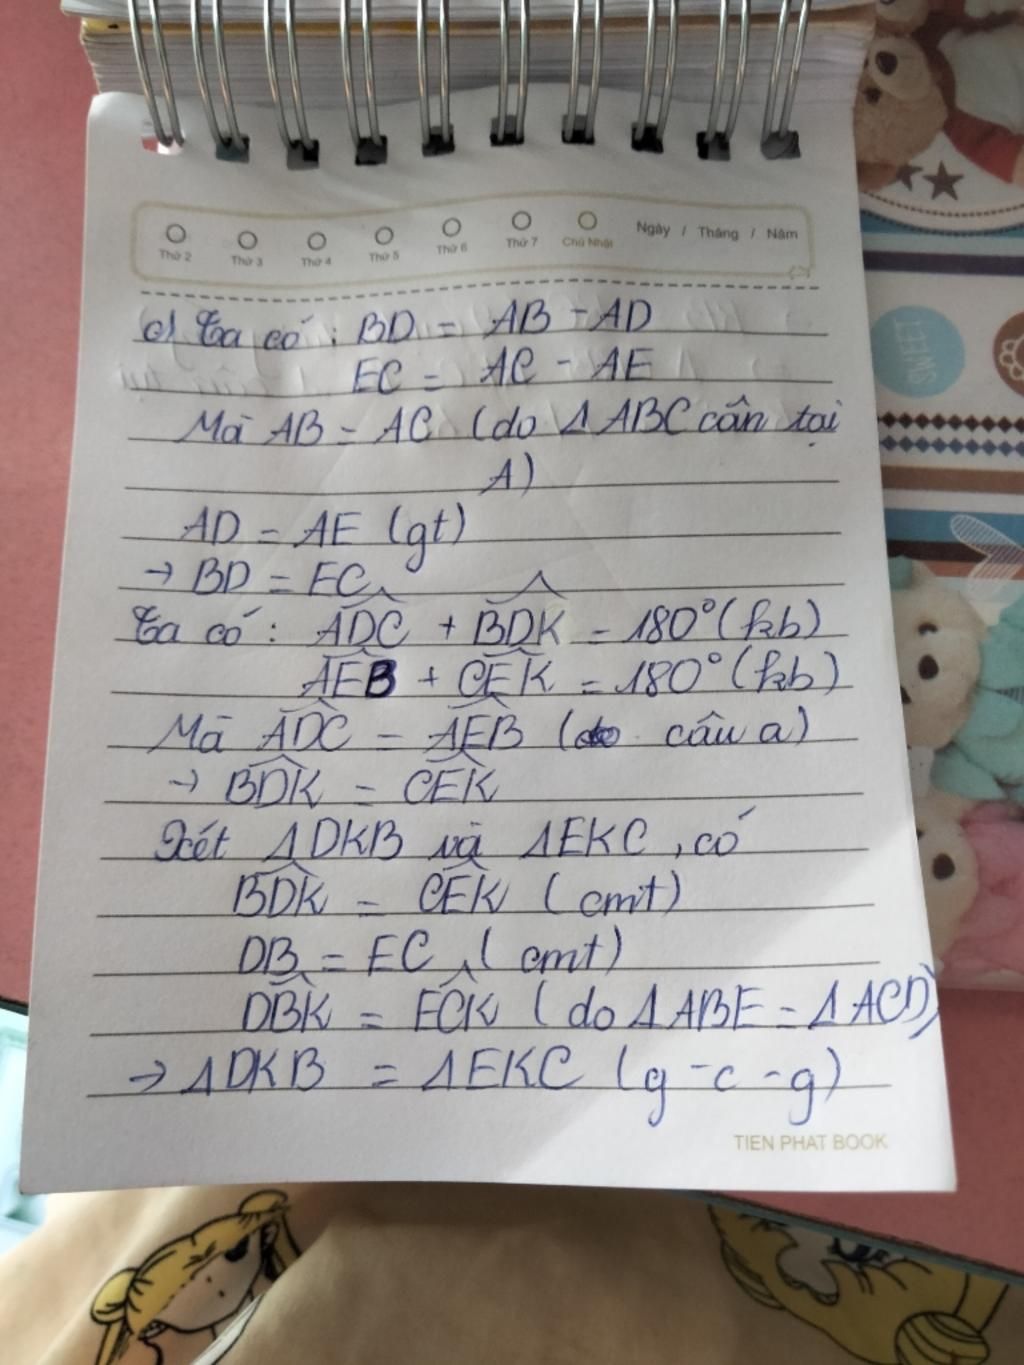 Thứ 2 Thứ 3 Thứ 4 Thứ 5 Thứ 6 Thứ 7 Chủ Nhật Ngày / Tháng / Năm
c) Ta có: BD = AB - AD
EC = AC - AE
Mà AB = AC (do Δ ABC cân tại
A)
AD = AE (gt)
→ BD = EC
Ta có: ADC + BDK = 180° (kb)
AEB + CEK = 180° (kb)
Mà ADC = AEB (do câu a)
→ BDK = CEK
Xét Δ DKB và Δ EKC, có
BDK = CEK (cmt)
DB = EC (cmt)
DBK = ECK (do Δ ABE = Δ ACD)
→ Δ DKB = Δ EKC (g - c - g)
TIEN PHAT BOOK
SWEET